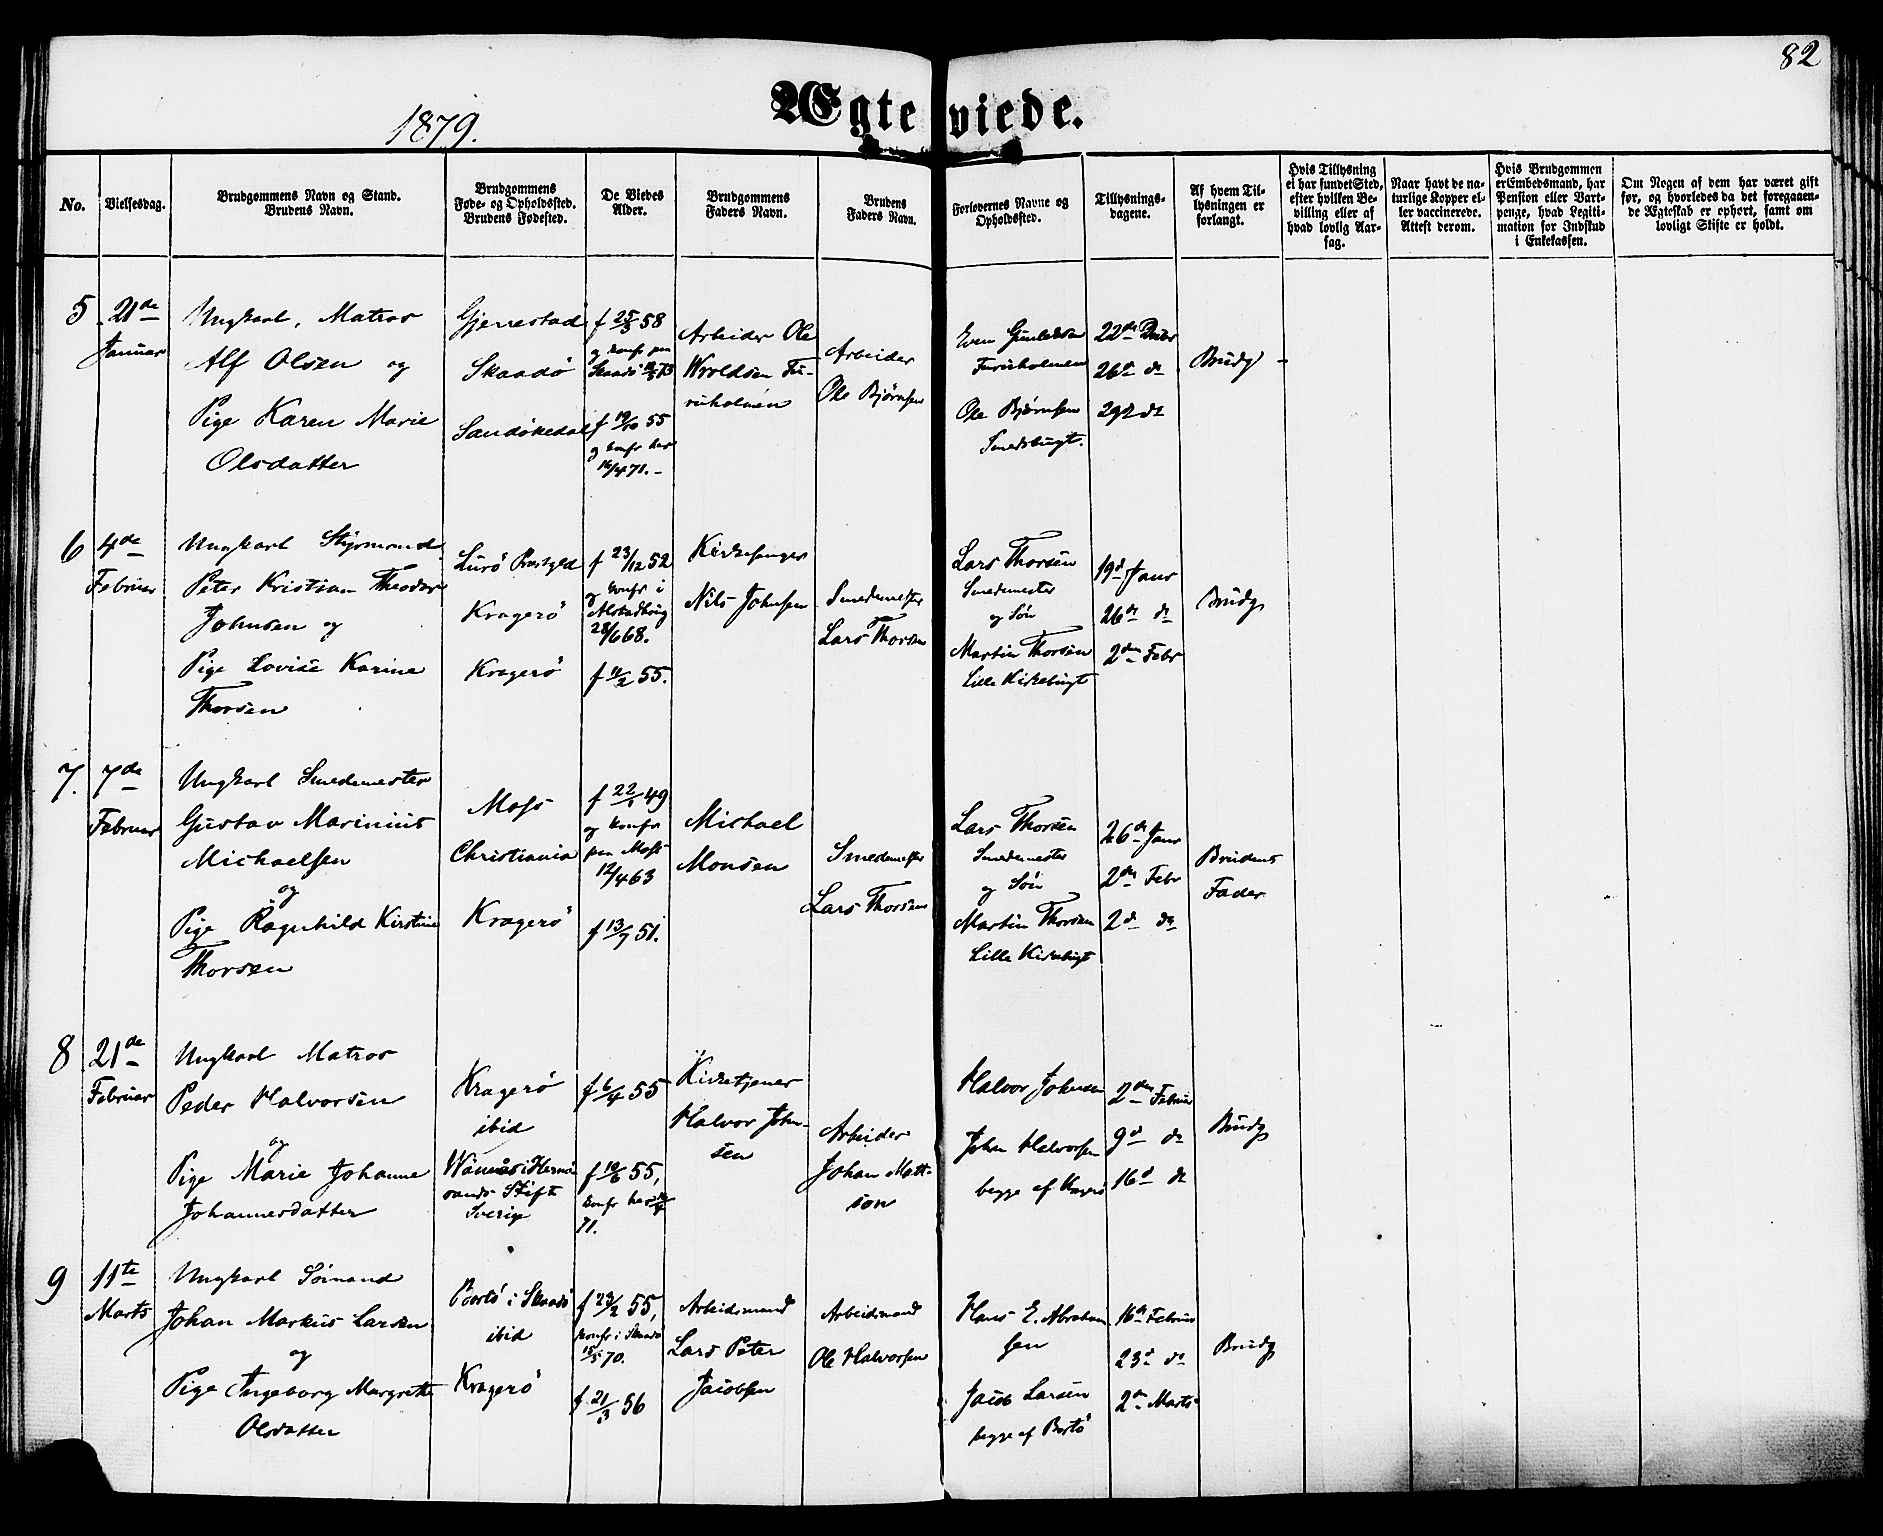 82
1879.
Ægteviede.
No.
Vielsesdag.
Brudgommens Navn og Stand.
Brudens Navn.
Brudgommens
Føde- og Opholdssted.
Brudens Fødested.
De Viedes
Alder.
Brudgommens
Faders Navn.
Brudens
Faders Navn.
Forlovernes Navne og
Opholdssted.
Tillysnings-
dagene.
Af hvem Til-
lysningen er
forlangt.
Hvis Tillysning
ei har fundet Sted,
efter hvilken Be-
villing eller af
hvad lovlig Aar-
sag.
Naar havt de na-
turlige Kopper el-
ler vaccinerede.
Attest derom.
Hvis Brudgommen
er Embedsmand, har
Pension eller Vart-
penge, hvad Legiti-
mation for Indskud
i Enkekassen.
Om Nogen af dem har været gift
før, og hvorledes da det foregaaen-
de Ægteskab er ophørt, samt om
lovligt Skifte er holdt.
5
21de
Januar
Ungkarl, Matros
Alf Olsen og
Pige Karen Marie
Olsdatter
Gjerrestad
Skaadö
Sandökedal
f 25/3 58
og konf paa
Skaadö
f 19/10 55
og konf her
16/4 71. -
Arbeider Ole
Wroldsen Fu-
ruholmen
Arbeider
Ole Bjørnsen
Even Gunleksen
Furuholmen
Ole Bjørnsen
Smedsbugt.
22de Decbr
26de do
29de do
Brudg -
6
4de
Februar
Ungkarl Styrmand
Peter Kristian Theodor
Johnsen og
Pige Lovise Karine
Thorsen
Lurö Præstgjd
Kragerö
Kragerö
f 23/12 52
og konf i
Alstadhoug
28/6 68.
f 11/2 55.
Kirkesanger
Nils Johnsen
Smedemester
Lars Thorsen
Lars Thorsen
Smedemester
og Søn
Martin Thorsen
Lille Kirkebugt
19d Janr
26de do
2den Febr
Brudg
7.
7de
Februar
Ungkarl Smedemester
Gustav Marinius
Michaelsen
og
Pige Ragnhild Kirstine
Thorsen
Moss
Christiania
Kragerö
f 22/1 49
og konf
paa Moss
12/4 63
f 13/7 51.
Michael
Monsen
Smedemester
Lars Thorsen
Lars Thorsen
Smedemester
og Søn
Martin Thorsen
Lille Kirkebugt
26de Janr
2den Febr
2d do
Brudens
Fader
8
21de
Februar
Ungkarl Matros
Peder Halvorsen
og
Pige Marie Johanne
Johannesdatter
Kragerö
ibid
i Herno-
sands Stift
Sverige
f 6/4 55
f 10/6 55,
konf her
71.
Kirketjener
Halvor John-
sen
Arbeider
Johan Matt-
son
Halvor Johnsen
Johan Halvorsen
begge af Kragerö
2den Februar
9d do
16d do
Brudg
9
11te
Marts
Ungkarl Sömand
Johan Markus Larsen
og
Pige Ingeborg Margrethe
Olsdatter
Bortö i Skaadö
ibid
Kragerö
f 23/2 55,
konf i Skaadö
15/5 70.
f 21/3 56
Arbeidsmand
Lars Peter
Jacobsen
Arbeidsmand
Ole Halvorsen
Hans E. Abraham
sen
Jacob Larsen
begge af Bortö
16de Februar
23d do
2den Marts
Brudg